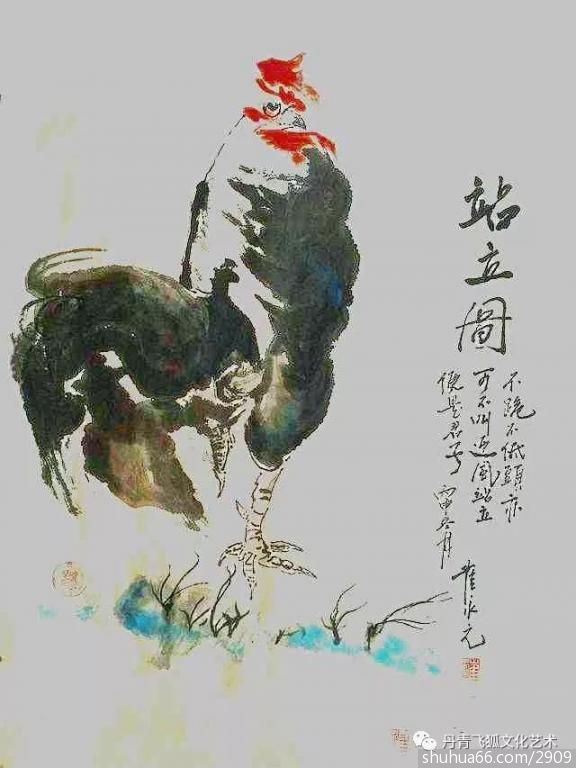 站立圖
不跪不低頭亦
可不叫迎風站立
便是君子 丙申冬月
崔永元
丹青飞狐文化艺术
shuhua66.com/2909